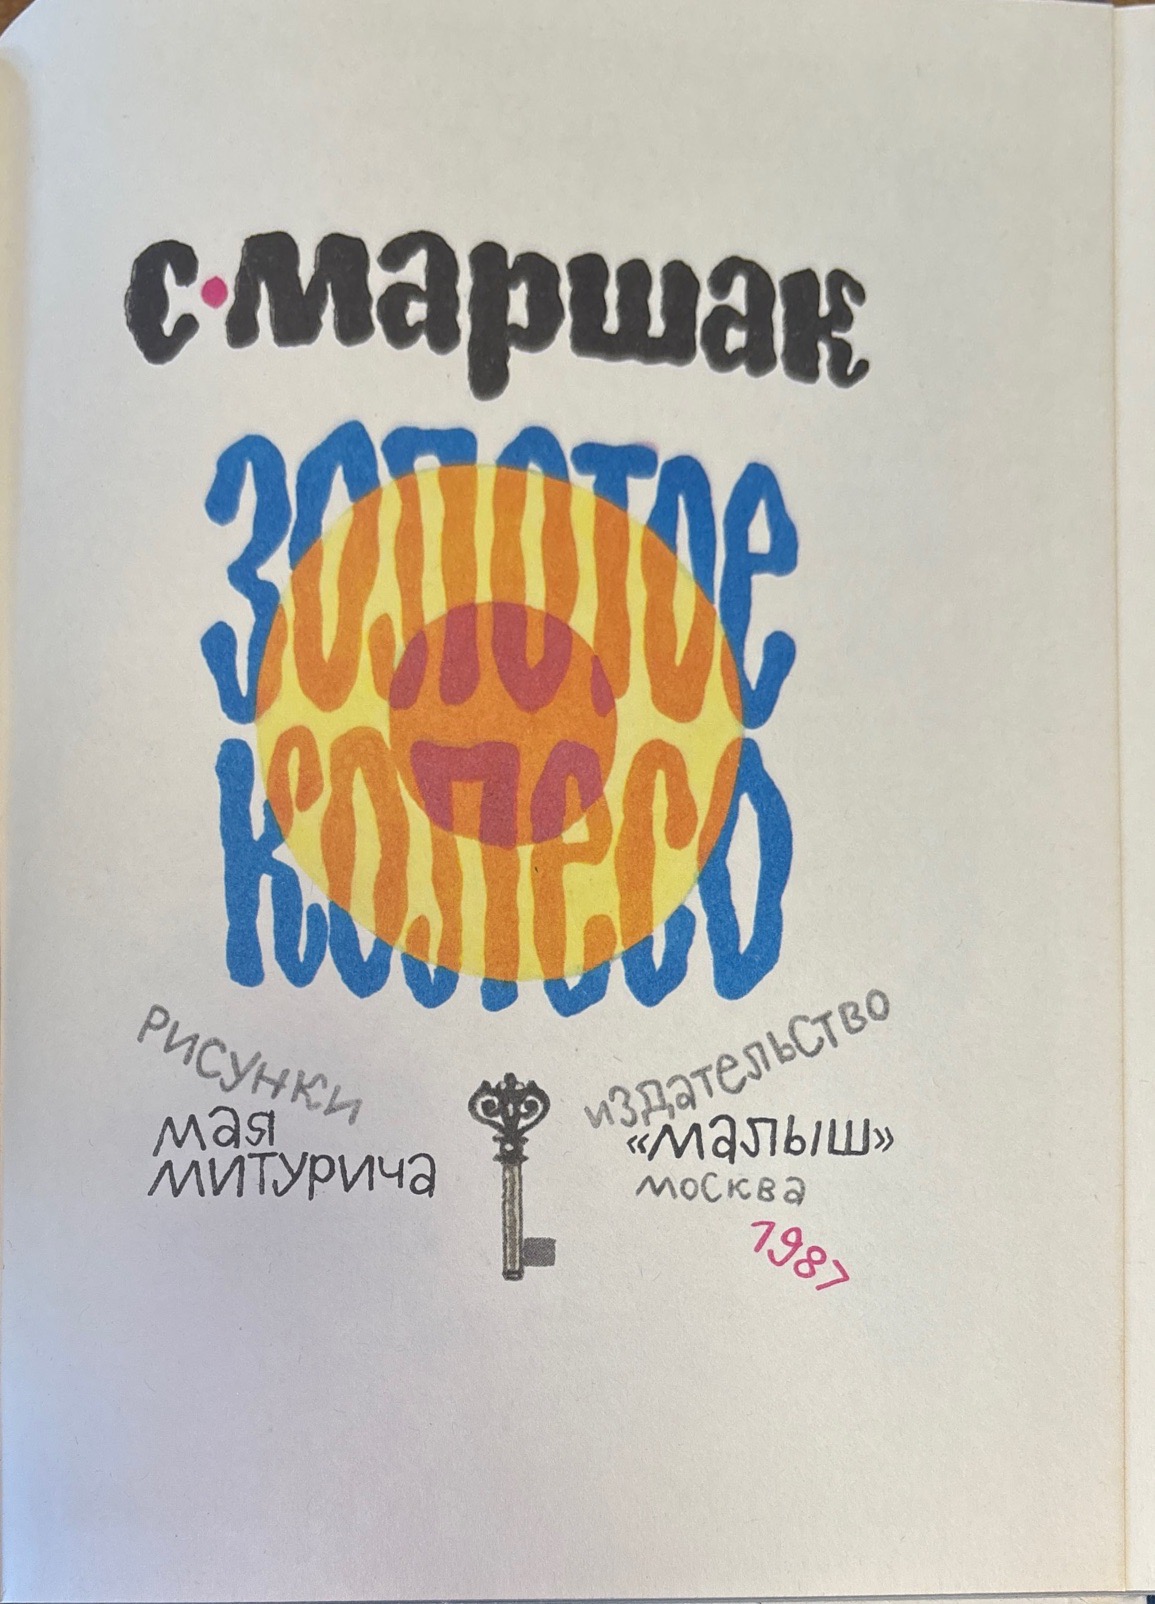 С·Маршак
Золотое
колесо
Рисунки
Мая
Митурича
Издательство
«Малыш»
Москва
1987